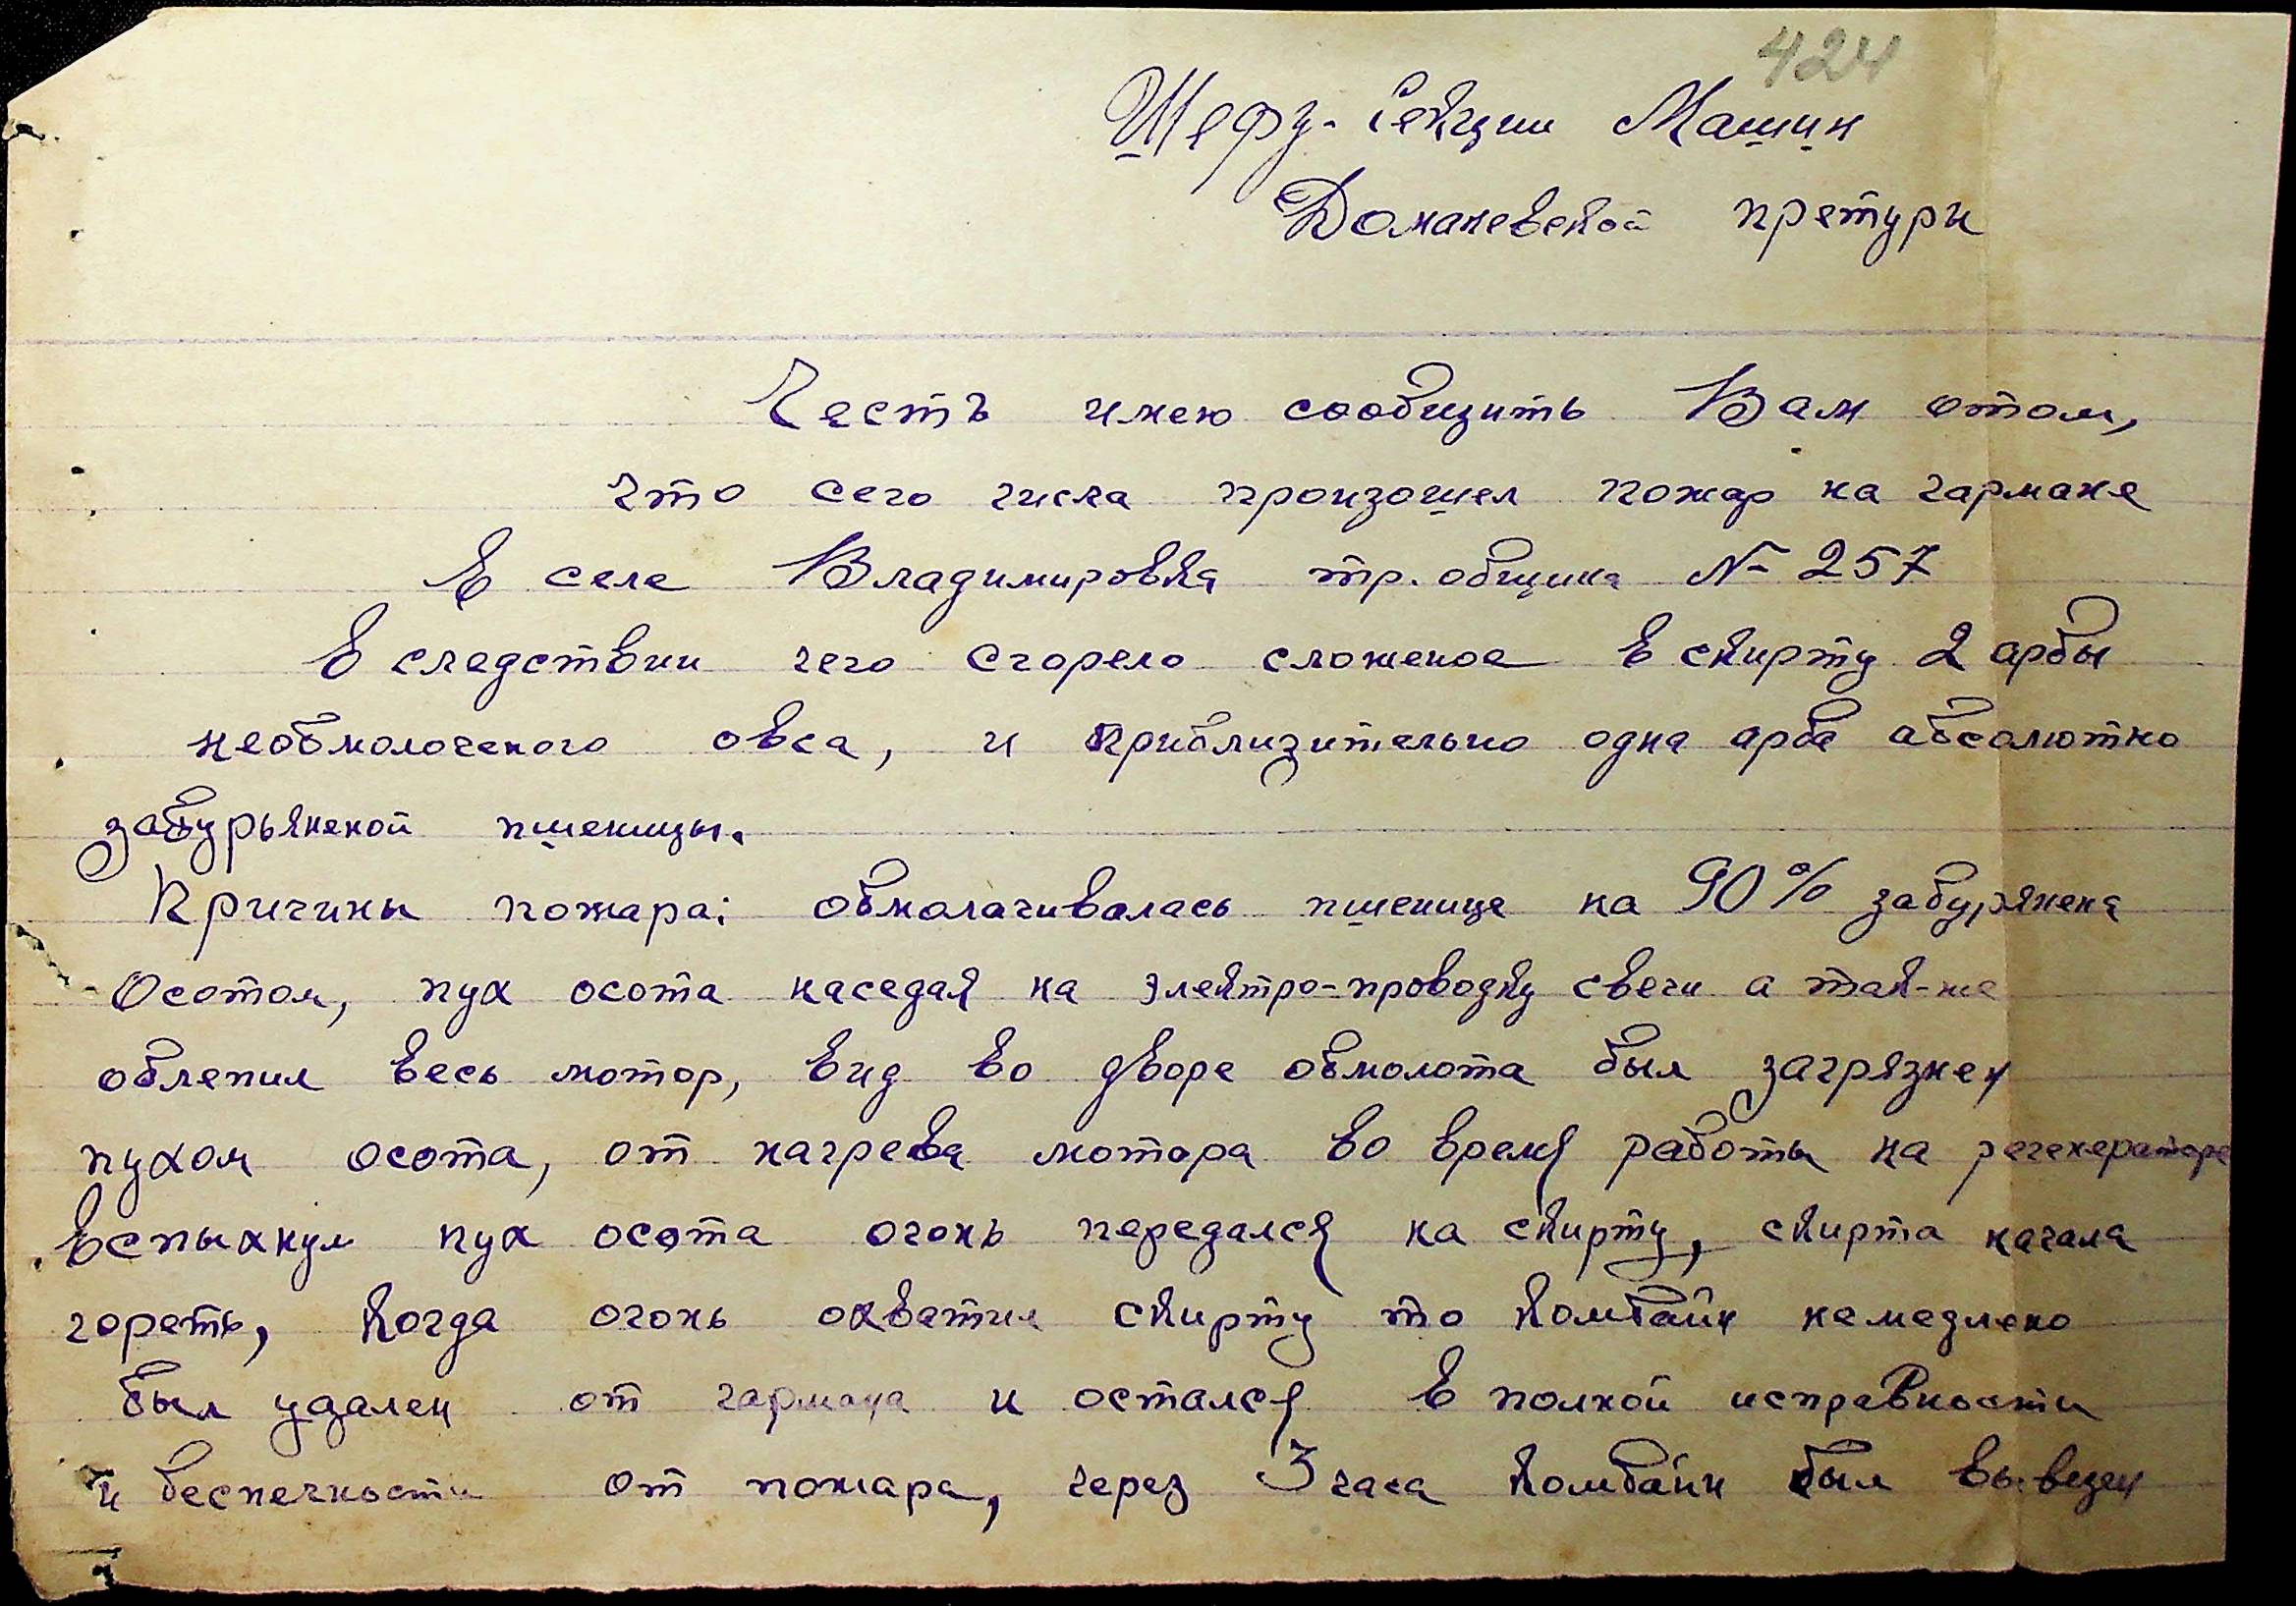 424
Шефу-Секции Машин
Доманевской претури
Честь имею сообщить Вам отом,
что сего числа произошел пожар на гармане
в селе Владимировка тр. община № 257
в следствии чего сгорело сложеное в скирту 2 арбы
необмолоченого овса, и приблизительно одна арба абсолютно
забурьяненой пшеницы.
Причины пожара: обмолачивалась пшеница на 90% забурянена
Осотом, пух осота наседая на электро-проводку свечи а так-же
облепил весь мотор, вид во дворе обмолота был загрязнен
пухом осота, от нагрева мотора во время работы на регенераторе
вспыхнул пух осота огонь передался на скирту, скирта начала
гореть, когда огонь охватил скирту то комбайн немедлено
был удален от гармана и остался в полной исправности
и беспечности от пожара, через 3 часа комбайн был вывезен